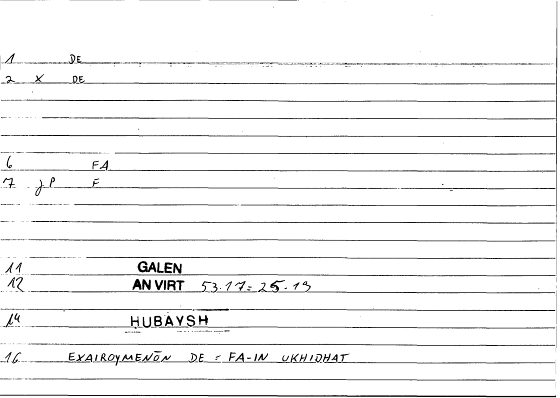 1 DE
2 X DE
6 FA
7 JP F
11 GALEN
12 AN VIRT 53.17 = 25.19
14 HUBAYSH
16 EXAIROYMENŌN DE = FA-IN UKHIDHAT